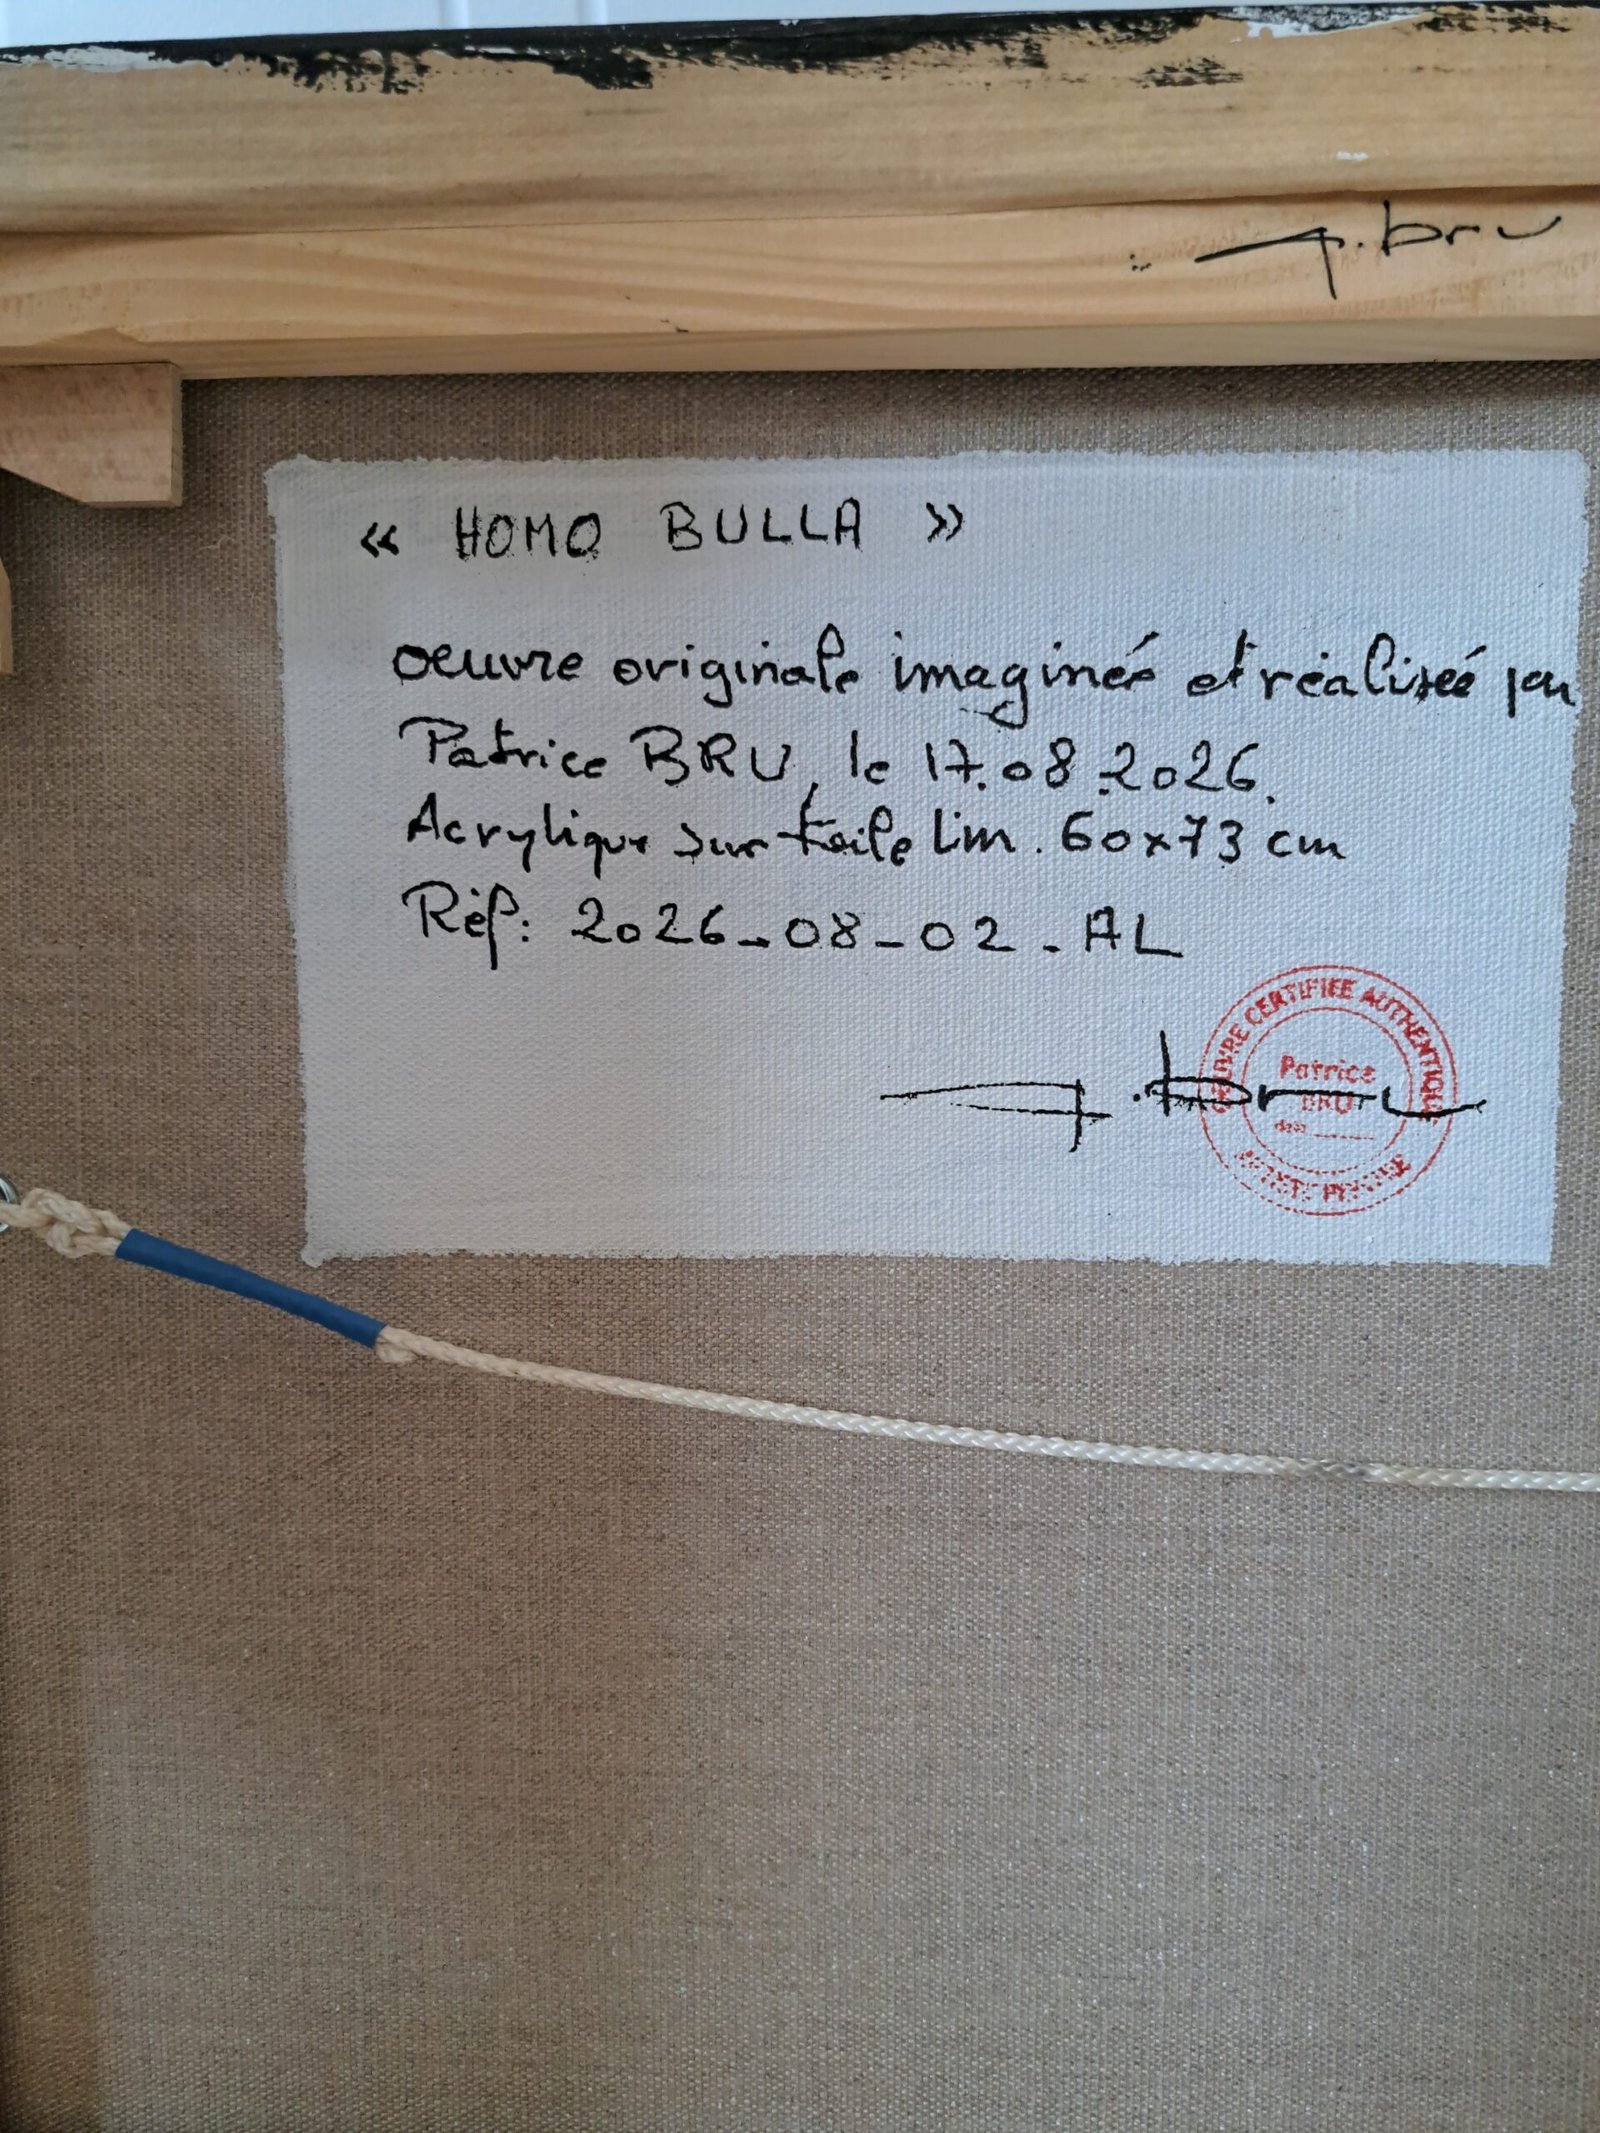 p.bru
« HOMO BULLA »
oeuvre originale imaginée et réalisée par
Patrice BRU, le 17.08.2026.
Acrylique sur toile lin. 60x73 cm
Réf: 2026-08-02-AL
p.bru
OEUVRE CERTIFIEE AUTHENTIQUE
Patrice
BRU
date
ARTISTE PEINTRE